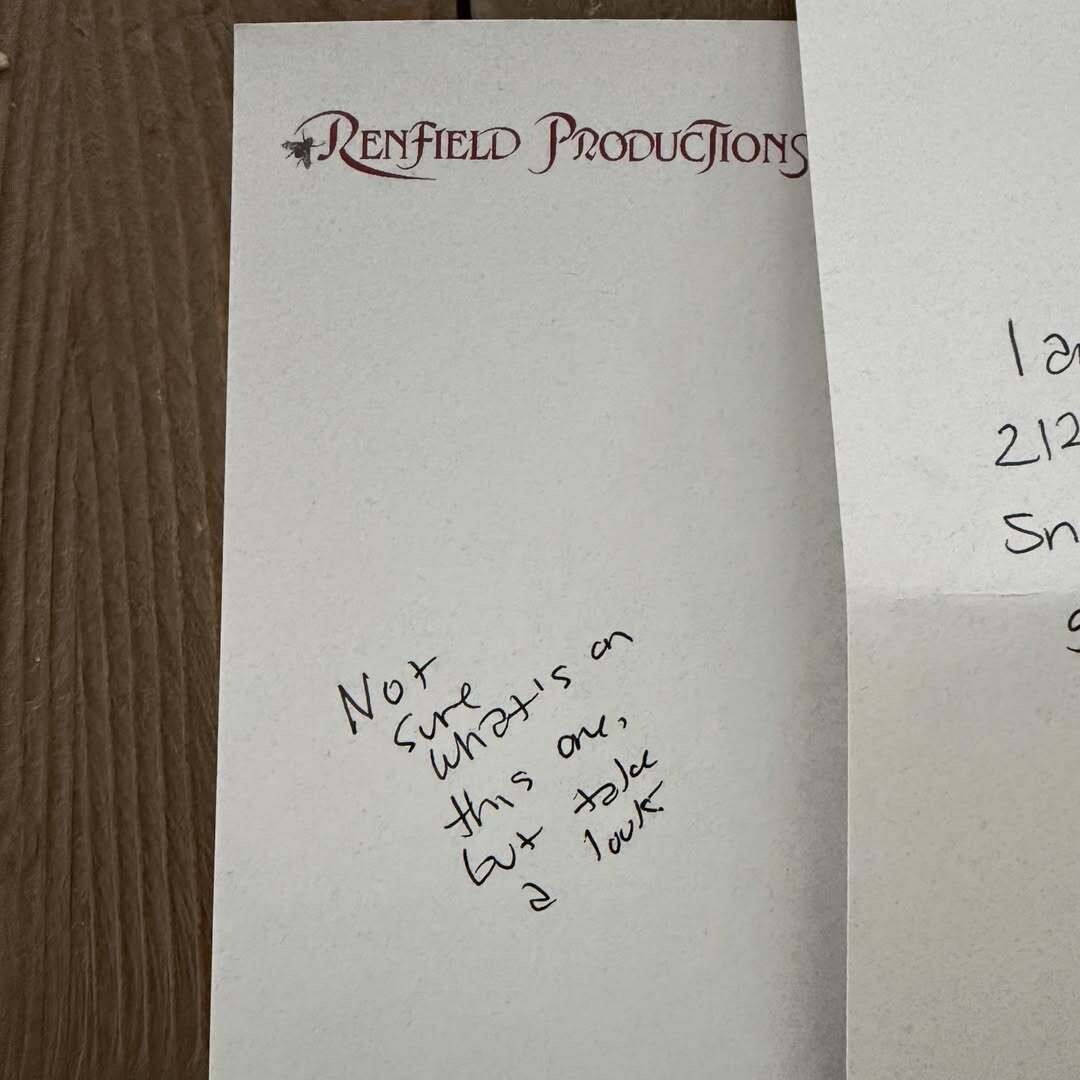 RENFIELD PRODUCTIONS
Not
sure
what's on
this one,
but take
a look
I a
212
Sn